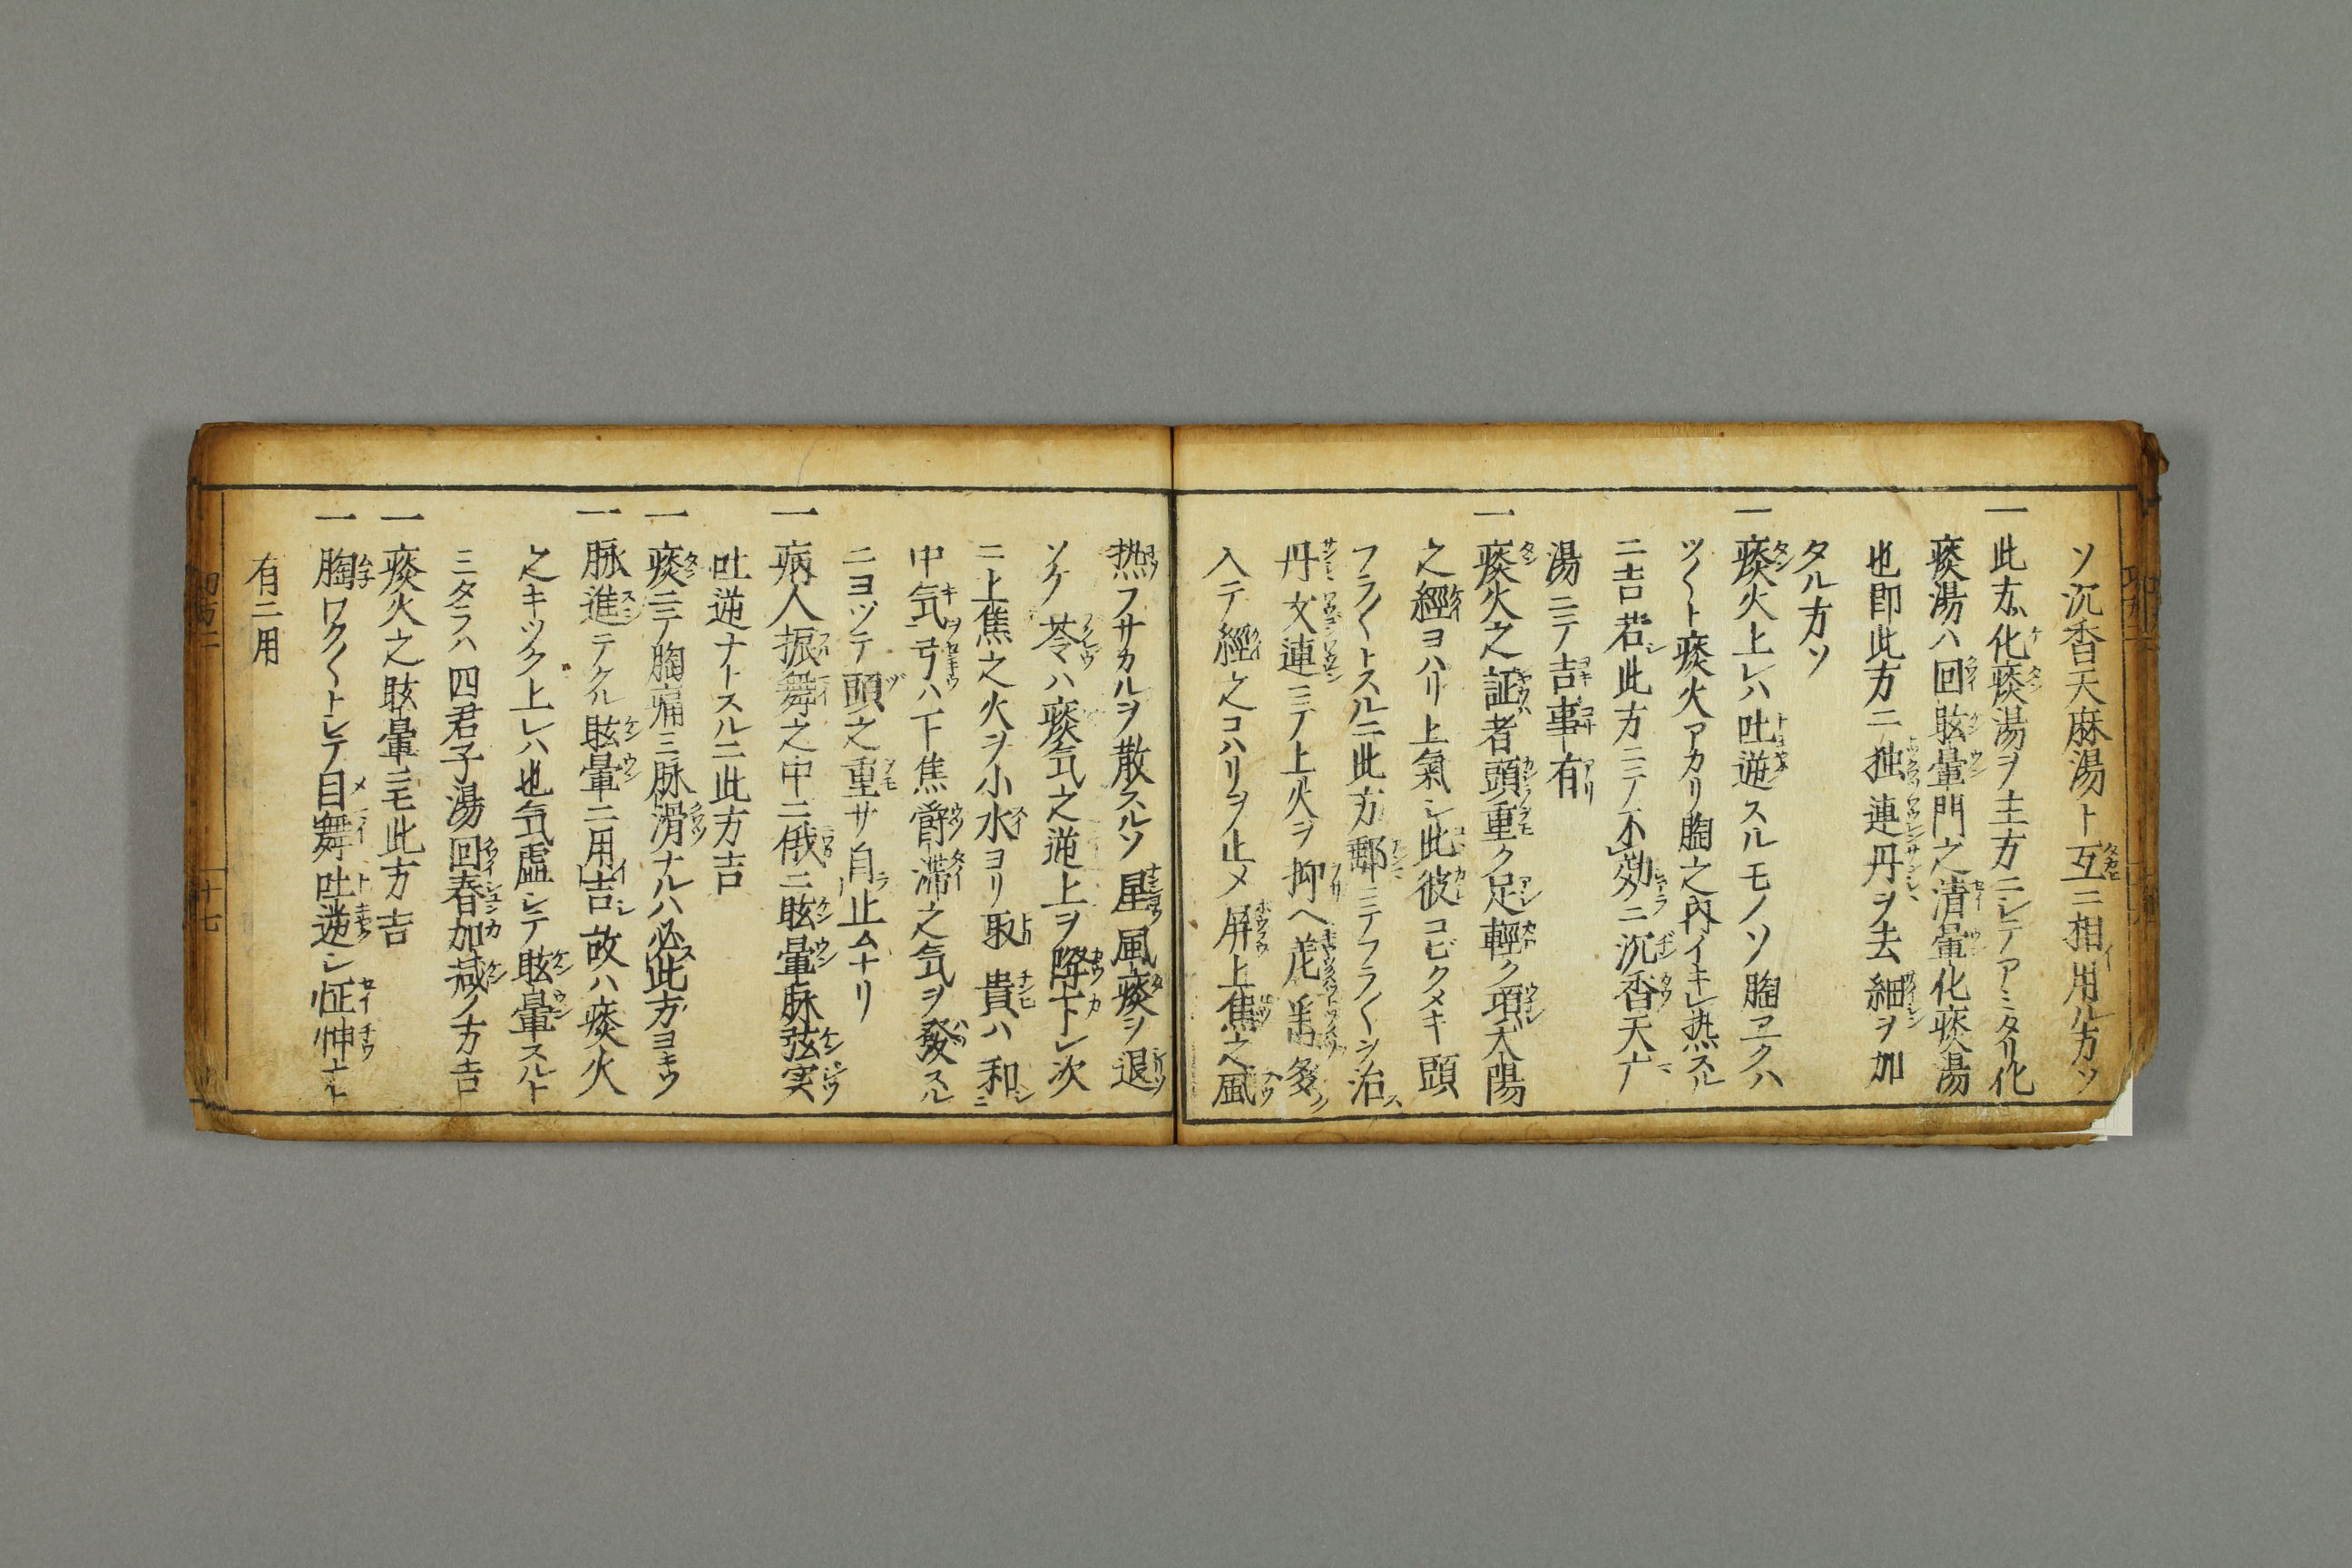 ソ沉香天麻湯ト互ニ相用ル方ソ
一此方ハ化痰湯ヲ主方ニシテアミタリ化
痰湯ハ回眩暈門之清暈化痰湯
也即此方ニ独連丹ヲ去細ヲ加
タル方ソ
一痰火上レハ吐逆スルモノソ胸ヲクハ
ツ〱ト痰火アカリ胸之内イキレ熱スル
ニ吉若此方ニテ不効ニ沉香天广
湯ニテ吉事有
一痰火之証者頭重ク足輕ク項太陽
之經ヨハリ上氣シ此彼コビクメキ頭
フラ〱トスルニ此方
ニテフラ〱ヲ治ス
丹 連ニテ上火ヲ抑ヘ
入テ經之コハリヲ止メ屏上焦之風
熱フサカルヲ散スルソ星風痰ヲ退
ソケ苓ハ痰気之逆上ヲ降下シ次
ニ上焦之火ヲ小水ヨリ取貴ハ和シ
中気弓ハ下焦欝滞之気ヲ發スル
ニヨツテ頭之重サ自止ムナリ
一病人振舞之中ニ俄ニ眩暈脉弦実
吐逆ナトスルニ此方吉
一痰ニテ胸痛ニ脉滑ナルハ必此方ヨキソ
一脉進テクル眩暈ニ用吉故ハ痰火
之キツク上レハ也気虚シテ眩暈スルト
ニタラハ四君子湯回春加减ノ方吉
一痰火之眩暈ニモ此方吉
一胸ワク〱トシテ目舞吐逆シ怔忡
有ニ用
十七